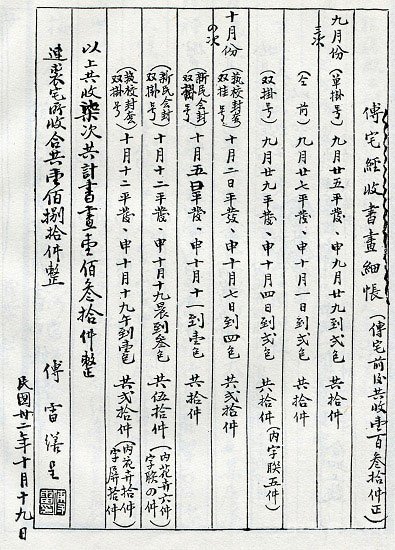 傅宅經收書畫細帳（傅宅前后共收壹百叁拾件正）
九月份 三次（單掛号）九月廿五平發、申九月廿九到弍包 共拾件
（仝前）九月廿七平發、申十月一日到弍包 共拾件
（双掛号）九月廿九平發、申十月四日到弍包 共拾件（內字联五件）
十月份 の次（藝校封套 双挂号）十月二日平發、申十月七日到四包 共弍拾件
（新民会封 双掛号）十月五日平發、申十月十一到壹包 共拾件
（新民会封 双掛号）十月十二平發、申十月十九晨到叁包 共伍拾件（內花卉六件 字联の件）
（藝校封套 双掛号）十月十二平發、申十月十九午到壹包 共弍拾件（內花卉拾件 字屏拾件）
以上共收柒次共計書畫壹佰叁拾件整
連裘宅所收合共壹佰捌拾件整
傅雷繕呈
民國卅二年十月十九日